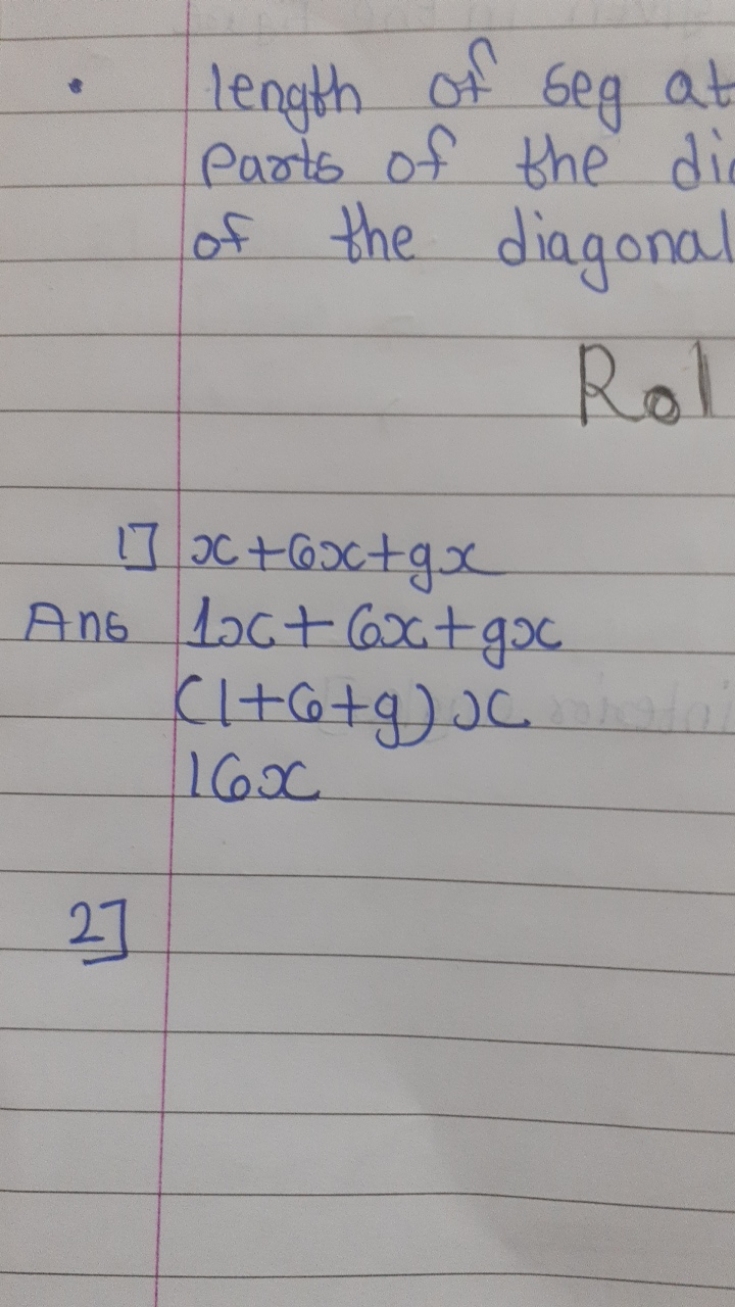 length of seg at
parts of the
of the diagonal
1] x+6x+9x
Ans 1x+6x+9x
(1+6+9)x
16x
2]